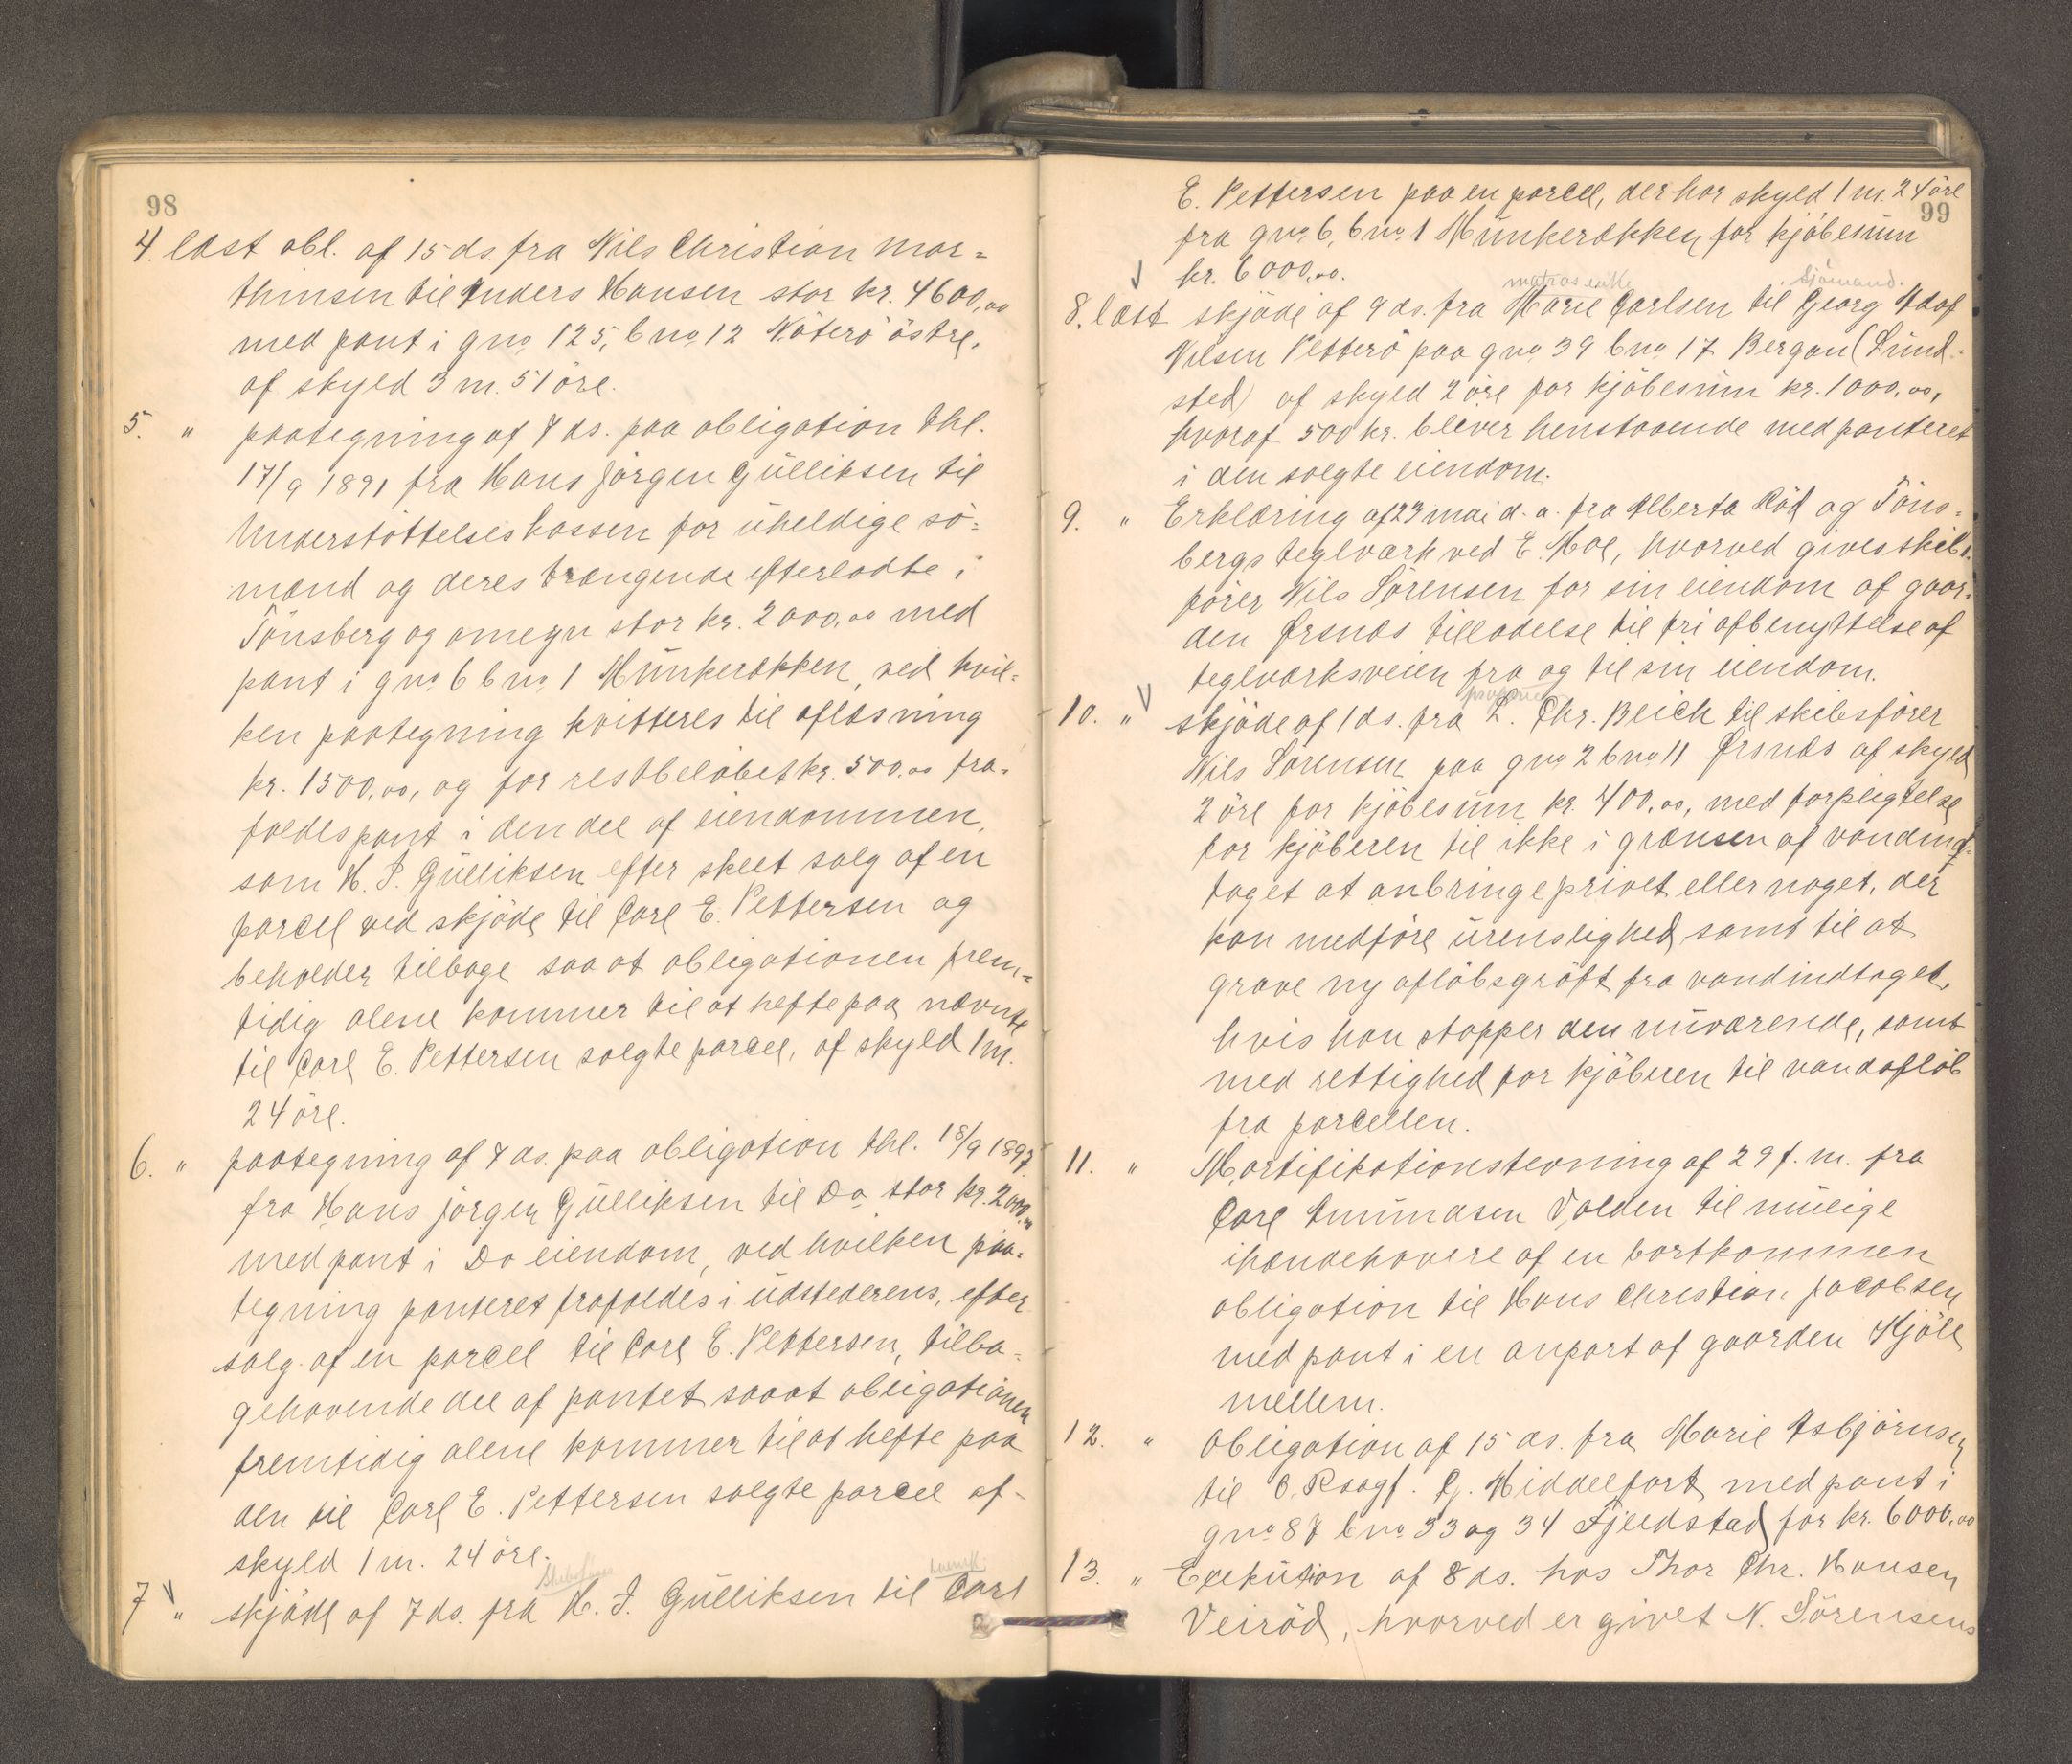 98
4. læst obl. af 15 ds. fra Nils Christian Mar-
thinsen til Anders Hansen stor kr. 4600,00
med pant i gno. 125, bno. 12 Nøterø østre,
af skyld 3 m. 51 øre.
5. " paategning af 7 ds. paa obligation thl.
17/9 1891 fra Hans Jørgen Gulliksen til
Understøttelseskassen for uheldige sø-
mænd og deres trængende efterladte i
Tønsberg og omegn stor kr. 2000,00 med
pant i gno. 6 bno. 1 Munkerækken, ved hvil-
ken paategning kvitteres til aflæsning
kr. 1500,00, og for restbeløbet kr. 500,00 fra-
faldes pant i den del af eiendommen,
som H. J. Gulliksen efter skeet salg af en
parcel ved skjøde til Carl E. Pettersen og
beholder tilbage saa at obligationen frem-
tidig alene kommer til at hefte paa nævnte
til Carl E. Pettersen solgte parcel, af skyld 1 m.
24 øre.
6. " paategning af 7 ds. paa obligation thl. 18/9 1897
fra Hans Jørgen Gulliksen til Do stor kr. 2000,00
med pant i Do eiendom, ved hvilken paa-
tegning panteret frafaldes i udstederens, efter
salg af en parcel til Carl E. Pettersen, tilba-
gehavende del af pantet saaat obligationen
fremtidig alene kommer til at hefte paa
den til Carl E. Pettersen solgte parcel af
skyld 1 m. 24 øre.
7 " skjøde af 7 ds. fra H. J. Gulliksen til Carl
99
E. Pettersen paa en parcel, der har skyld 1 m. 24 øre
fra gno. 6, bno. 1 Munkerækken for kjøbesum
kr. 6000,00.
matros enke sjømand.
8. læst skjøde af 9 ds. fra Marie Carlsen til Georg Adof
Nilsen Petterø paa gno. 39 bno. 17 Bergan (Lund-
sted) af skyld 2 øre for kjøbesum kr. 1000,00,
hvoraf 500 kr. bliver henstaaende med panteret
i den solgte eiendom.
9. " Erklæring af 23 mai d. a. fra Alberta Rød og Tøns-
bergs teglværk ved E. Moe, hvorved gives skibs-
fører Nils Sørensen for sin eiendom af gaar-
den Ørsnæs tilladelse til fri afbenyttelse af
teglværksveien fra og til sin eiendom.
10. " skjøde af 1 ds. fra L. Chr. Bleich til skibsfører
Nils Sørensen paa gno. 2 bno 11 Ørsnæs af skyld
2 øre for kjøbesum kr. 400,00, med forpligtelse
for kjøberen til ikke i grænsen af vandind-
taget at anbringe privet eller noget, der
kan medføre urenslighed, samt til at
grave ny afløbsgrøft fra vandindtaget,
hvis han stopper den nuværende, samt
med rettighed for kjøberen til vandafløb
fra parcellen.
11. " Mortifikationstevning af 29 f. m. fra
Carl Amundsen Valden til mulige
ihændehavere af en bortkommen
obligation til Hans Christian Jacobsen
med pant i en anpart af gaarden Kjøle
mellem.
12. " Obligation af 15 ds. fra Marie Asbjørnsen
til O.Rsagf. C. Middelfart med pant i
gno. 87 bno. 33 og 34 Fjeldstad for kr. 6000,00
13. " Exekution af 8 ds. hos Thor Chr. Hansen
Veirød, hvorved er givet N. Sørensens